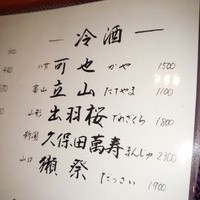 一 冷酒 一
可也 かや 1500
富山 立山 たてやま 1100
山形 出羽桜 でわざくら 1800
新潟 久保田萬寿 まんじゅ 2300
山口 獺祭 だっさい 1900